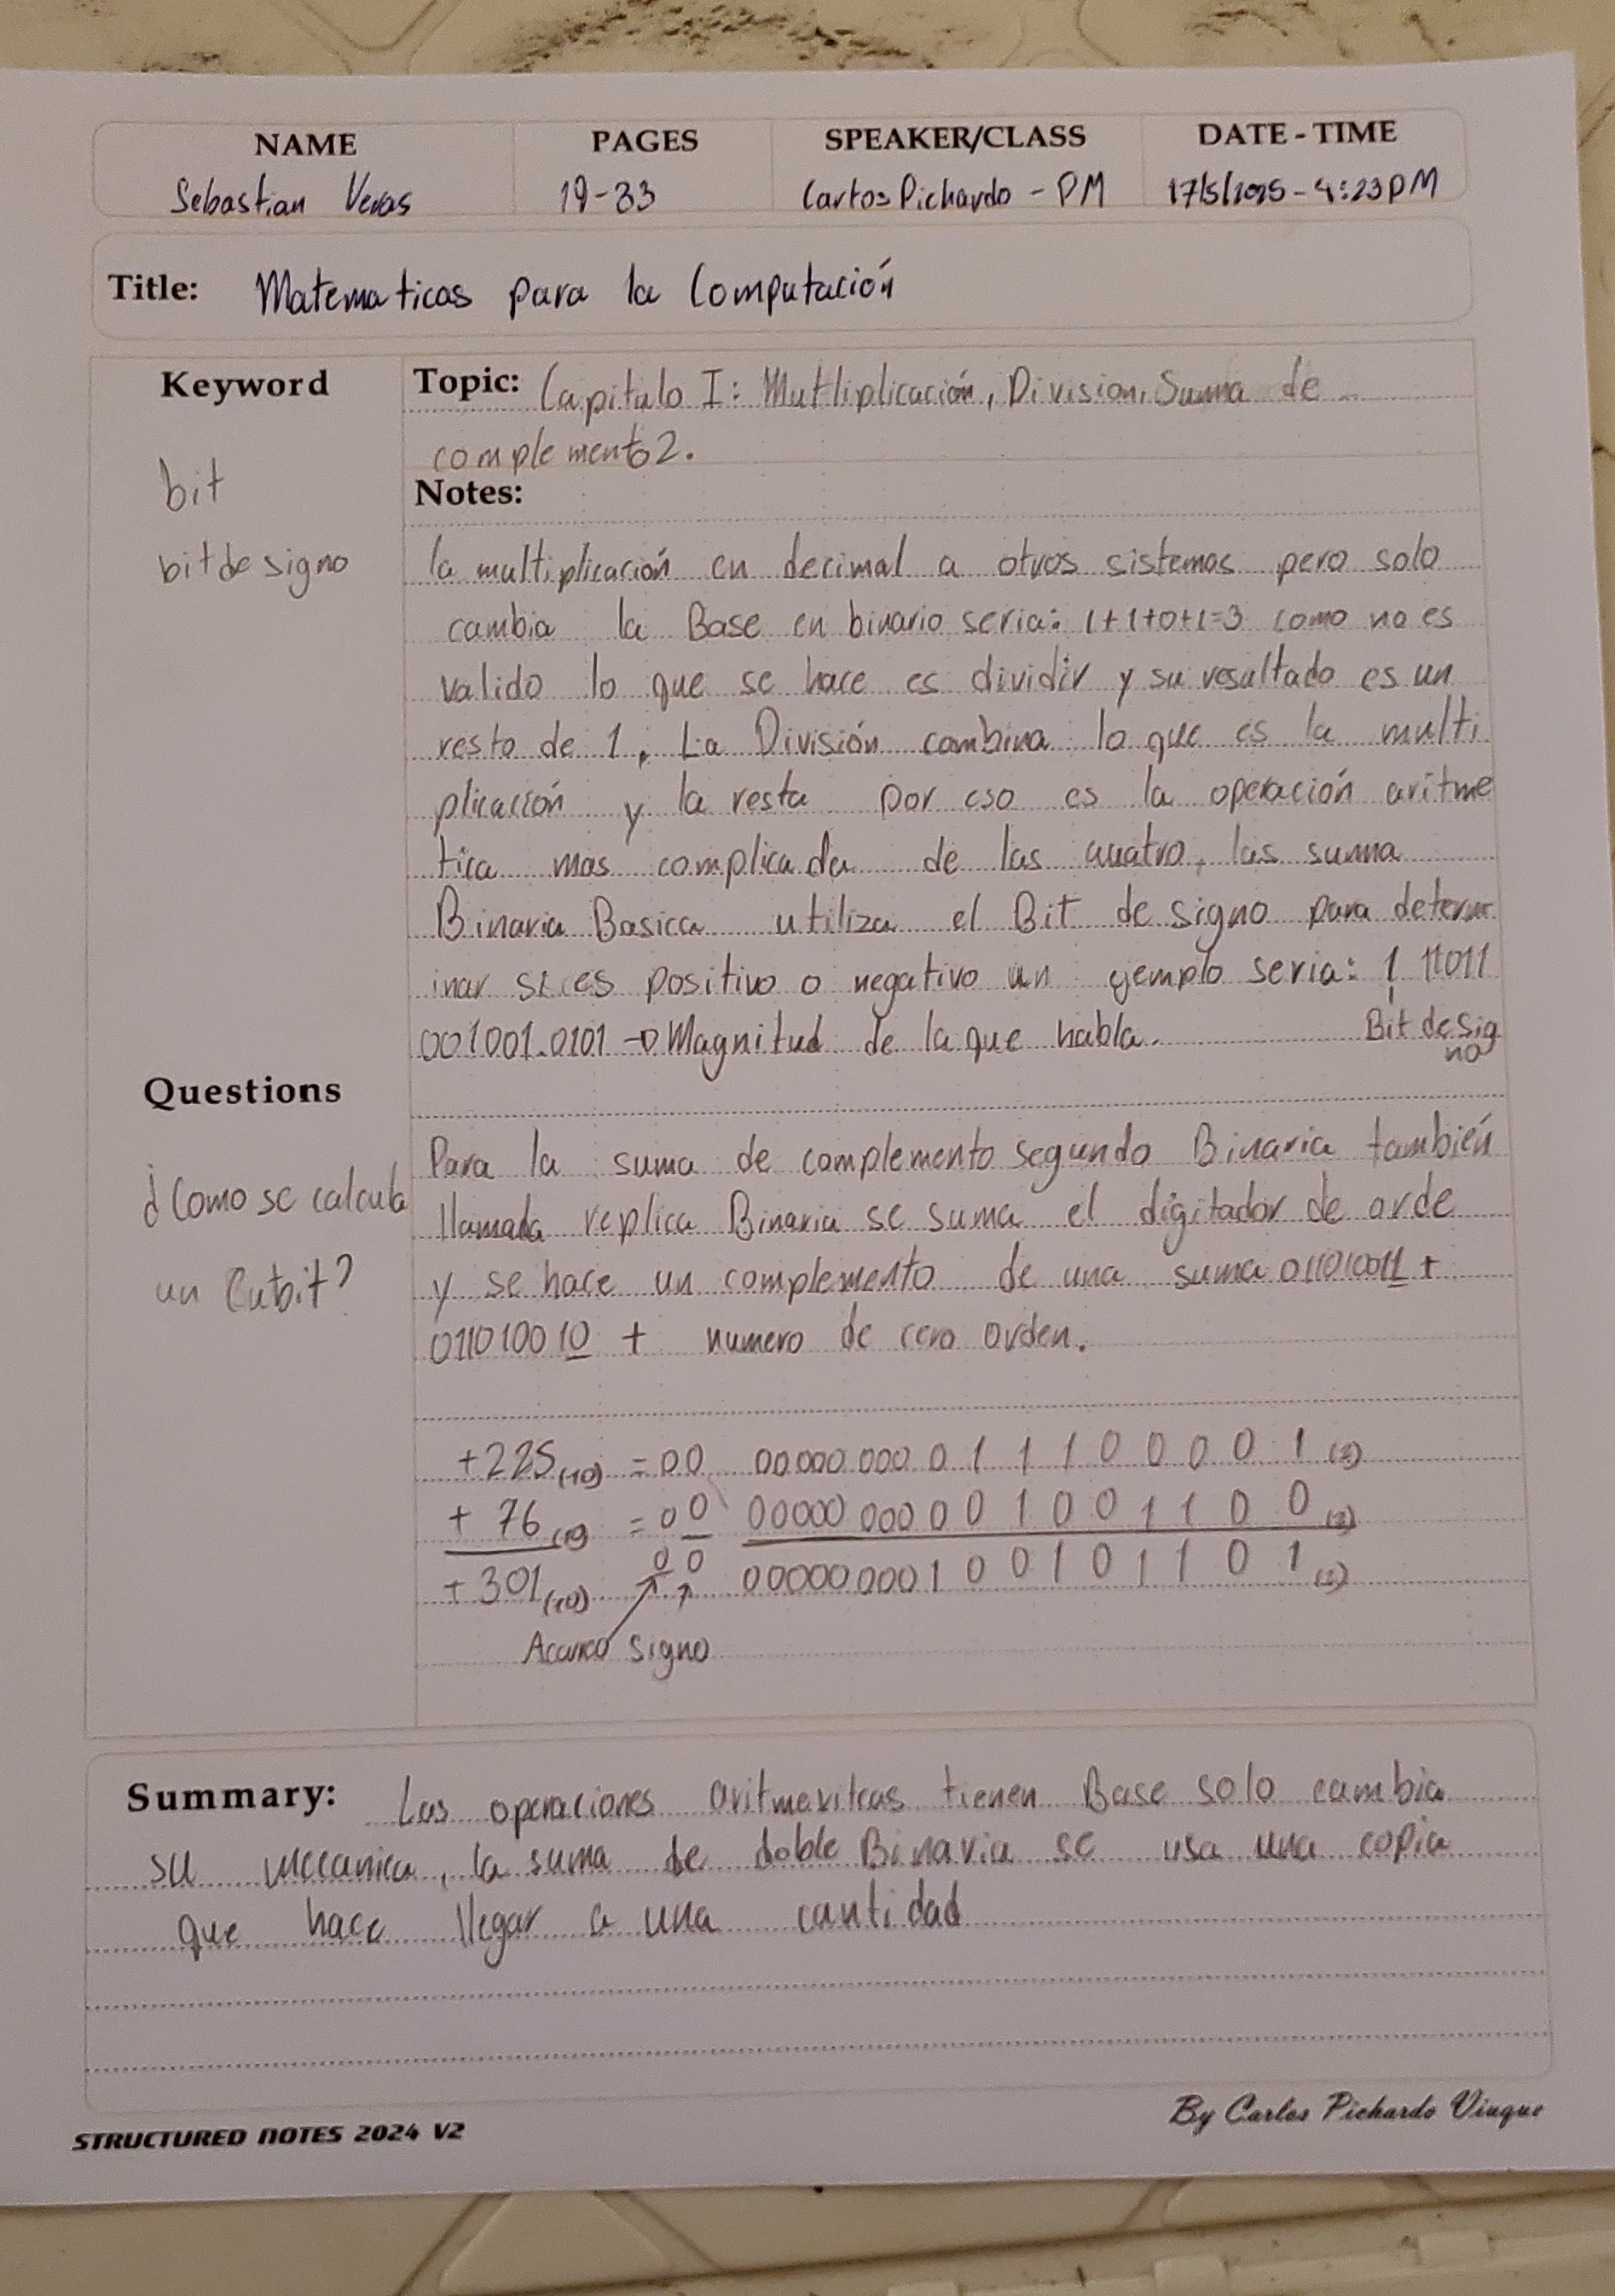 NAME PAGES SPEAKER/CLASS DATE - TIME
Sebastian Veras 19-33 Carlos Pichardo - PM 17/5/2025 - 4:23PM
Title: Matematicas para la Computación
Keyword
bit
bit de signo
Topic: Capitulo I: Mutliplicación, Division, Suma de
complemento 2.
Notes:
la multiplicación en decimal a otros sistemas pero solo
cambia la Base en binario seria: 1+1+0+1=3 como no es
valido lo que se hace es dividir y su resultado es un
resto de 1, La División combina lo que es la multi
plicación y la resta por eso es la operación aritme
tica mas complicada de las cuatro, las suma
Binaria Basica utiliza el Bit de signo para determ
inar si es positivo o negativo un ejemplo seria: 1 11011
001001.0101 → Magnitud de la que habla. Bit de sig
no
Questions
¿Como se calcula
un Cubit?
Para la suma de complemento segundo Binaria también
llamada replica Binaria se suma el digitador de orde
y se hace un complemento de una suma 011010011 +
011010010 + numero de cero orden.
+225(10) = 00 00000 000 0 1 1 1 0 0 0 0 1 (2)
+ 76(10) = 00 00000 000 0 0 1 0 0 1 1 0 0 (2)
+301(10) 00 000000001 0 0 1 0 1 1 0 1 (2)
Acarreo signo
Summary: Las operaciones aritmeritcas tienen Base solo cambia
su mecanica, la suma de doble Binaria se usa una copia
que hace llegar a una cantidad
STRUCTURED NOTES 2024 V2
By Carlos Pichardo Viuque